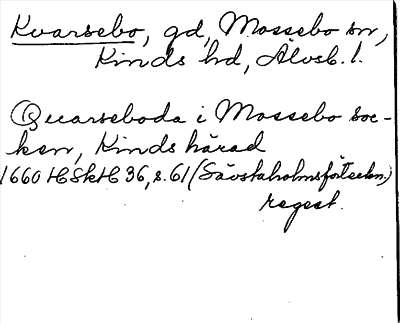 Kvarsebo, gd, Mossebo sn,
Kinds hd, Älvsb. l.
Quarseboda i Mossebo soc-
ken, Kinds härad
1660 HSkH 36, s. 61 (Sävstaholmsförteckn.)
regest.